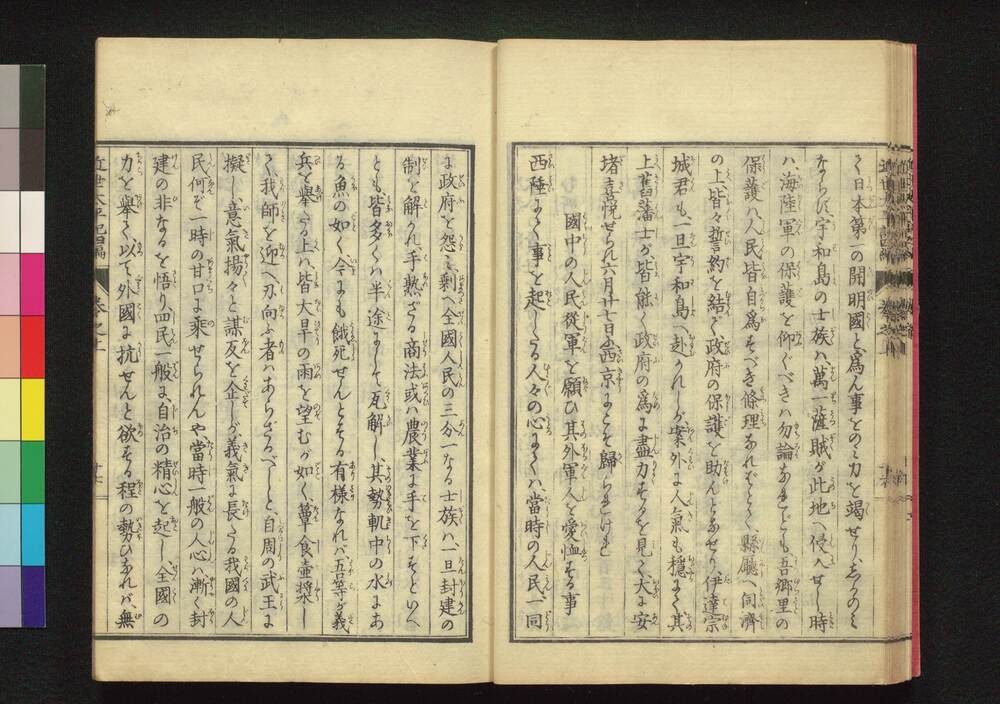 く日本第一の開明國と爲ん事とのミ力を竭せり、しかのミ
ならバ、宇和島の士族ハ、萬一薩賊が此地へ侵入せし時
ハ海陸軍の保護を仰ぐべきハ勿論なれども、吾郷里の
保護ハ人民皆自爲すべき條理なればとく、縣廳へ伺濟
の上、皆々誓約を結び政府の保護を助んとなせり、伊達宗
城君も、一旦宇和島へ赴かれしが、案外に人氣も穩にて其
上舊藩士が皆能く政府の爲に盡力するを見て大に安
堵喜悦せられ六月廿七日に西京にこそ歸られけれ
國中の人民從軍を願ひ其外軍人を愛恤する事
西陲にて事を起したる人々の心にてハ、當時の人民一同
に政府を怨ミ剰へ全國人民の三分一なる士族ハ一旦封建の
制を解かれ、手熟ざる商法或ハ農業に手を下すといへ
ども、皆多くハ半途にして瓦解し、其勢軌中の水にあ
る魚の如く今にも餓死せんとする有樣なれバ、吾等が義
兵を擧たる上ハ、皆大旱の雨を望むが如く、簞食壺漿し
て我師を迎へ刃向ふ者ハあらざるべしと、自周の武王に
擬し意氣揚々と謀反を企しが、義氣に長たる我國の人
民何ぞ一時の甘口に乘せられんや、當時一般の人心ハ漸く封
建の非なるを悟り四民一般に自治の精心を起し全國の
力を擧て以て外國に抗せんと欲する程の勢ひなれバ、無
近世太平記四編
卷之十
十七